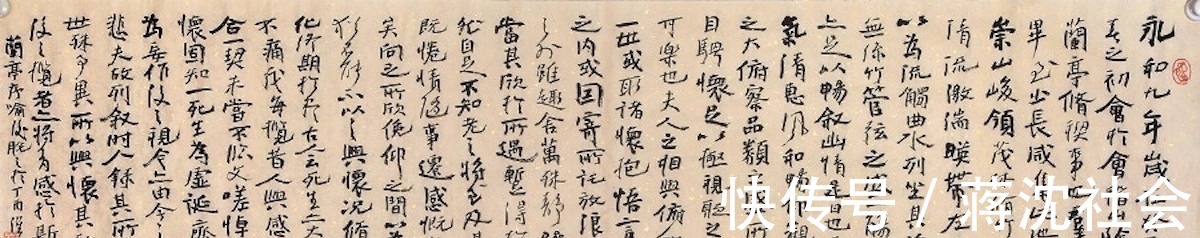 永和九年歲
春之初會於會
蘭亭脩禊事也群
畢至少長咸集此地
崇山峻領茂
清流激湍暎帶左
以為流觴曲水列坐其
無絲竹管弦之盛
上是以暢敘幽情是日也
氣清惠風和暢
之大俯察品類
目騁懷足以極視聽之
可樂也夫人之相與俯
一世或取諸懷抱悟言
之内或因寄所託放浪
之外雖趣舍萬殊靜
當其欣於所遇暫得
然自足不知老之將至及
既惓情隨事遷感慨
矣向之所欣俛仰之間以
猶能不以之興懷況脩
化終期於古人云死生大
不痛哉每覽昔人興感
合一契未嘗不臨文嗟悼
懷固知一死生為虛誕齊
為妄作後之視今亦由今
悲夫故列敘時人錄其所
世殊事異所以興懷其
後之覽者亦將有感於斯
蘭亭序 丁酉
快传号 / 蒋沈社会